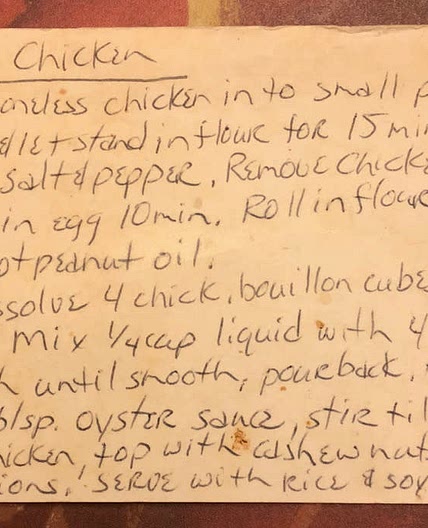 Chicken
oneless chicken in to small p
d let stand in flour for 15 min
salt & pepper, Remove Chicke
in egg 10 min. Roll in flour
ot peanut oil.
ssolve 4 chick. bouillon cube
Mix 1/4 cup liquid with 4
h until smooth, pour back,
blsp. oyster sauce, stir til
hicken, top with cashew nut
ions, serve with rice & soy